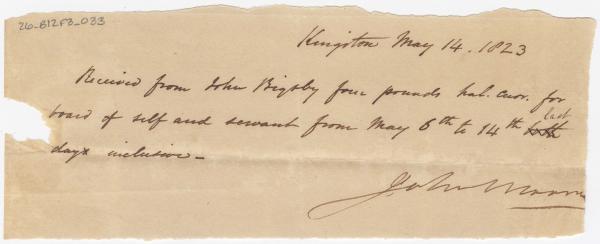 26-B12F3_033
Kingston May 14. 1823
Received from John Bigsby four pounds hal. Cur. for
board of self and servant from May 6th to 14th last
days inclusive -
John Moore